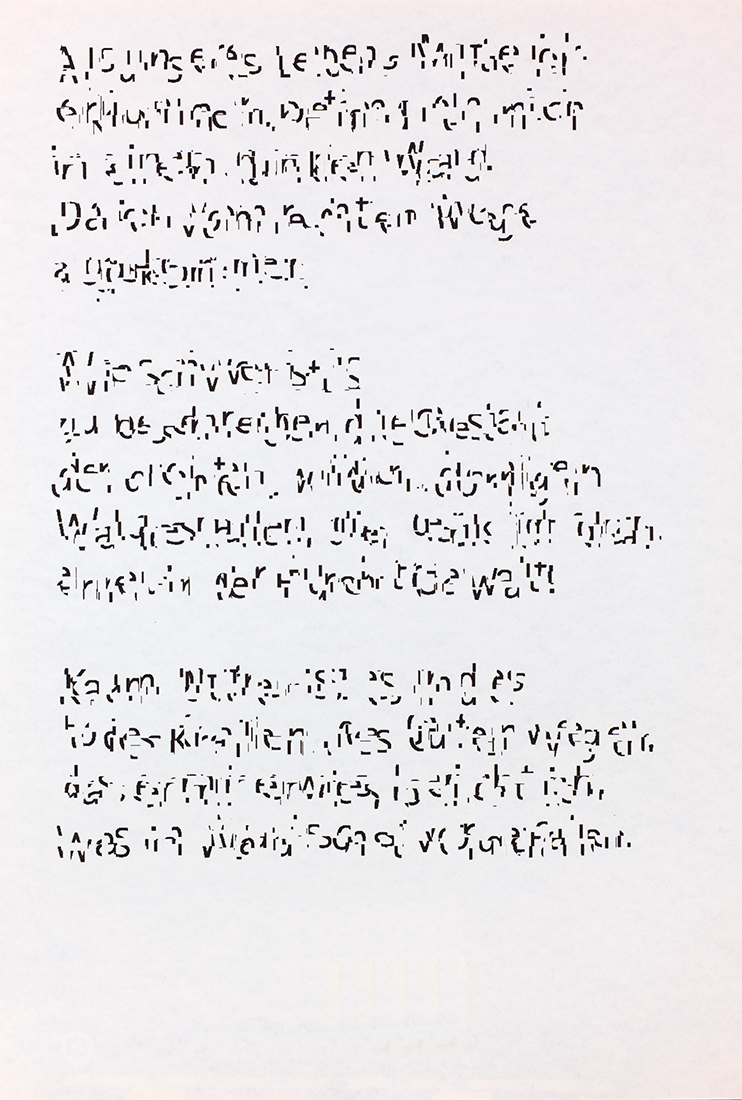 Als unseres Lebens Mitte ich
erklommen, befand ich mich
in einem dunklen Wald,
Da ich vom rechten Wege
abgekommen.
Wie schwer ist's
zu beschreiben die Gestalt
der dichten, wilden, dornigen
Waldeshallen, die, denk ich dran,
erneun der Furcht Gewalt!
Kaum bittrer ist es in des
Todes Krallen, des Guten wegen,
das er mir erwies, bericht ich,
was im Wald sonst vorgefallen.